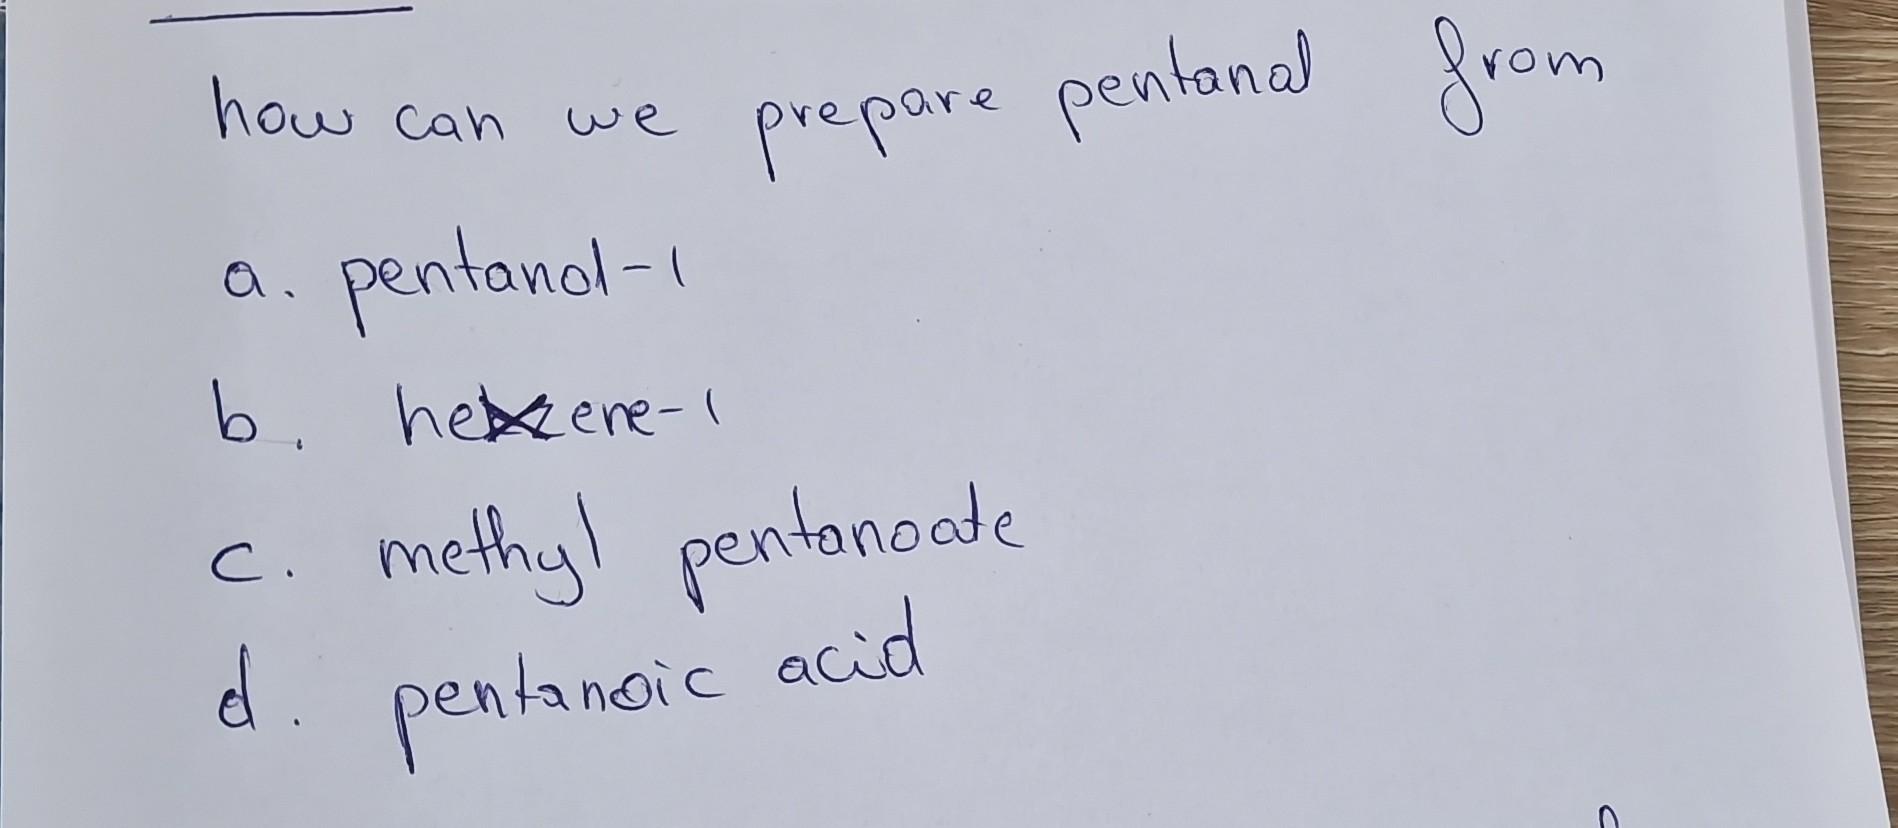 how can we prepare pentanal from
a. pentanol-1
b. hexene-1
c. methyl pentanoate
d. pentanoic acid